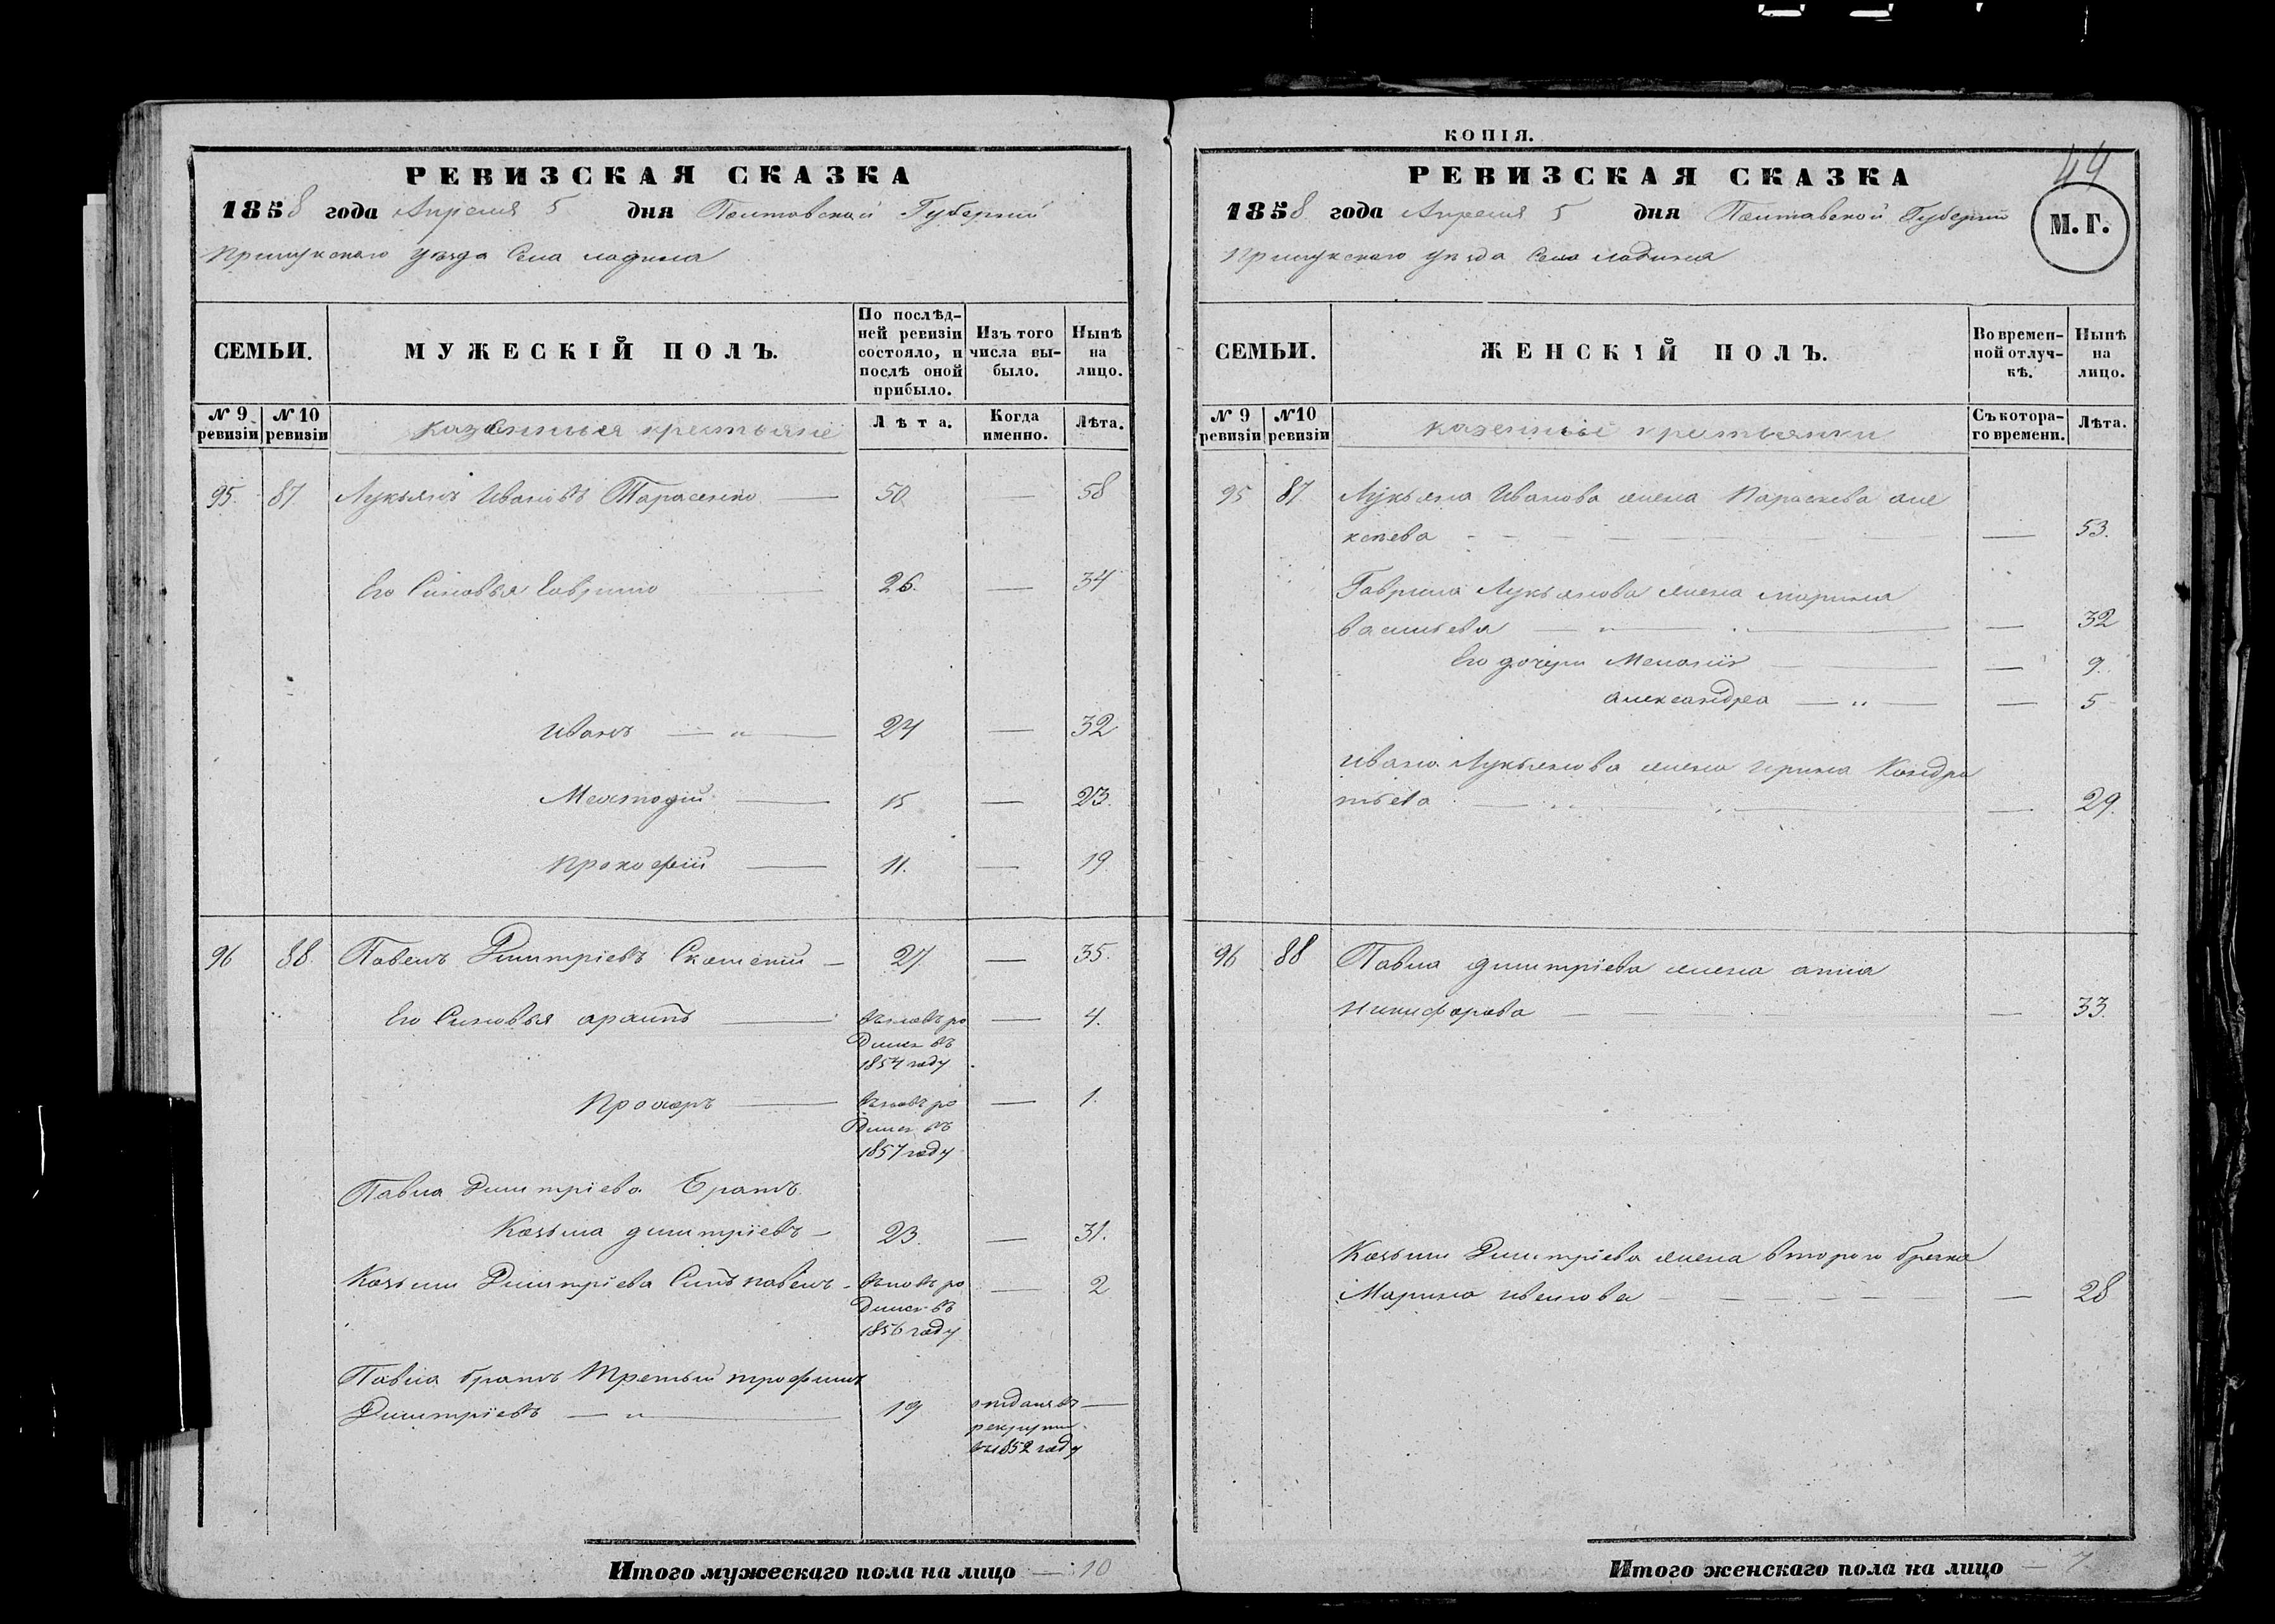 РЕВИЗСКАЯ СКАЗКА
1858 года Апреля 5 дня Полтавской Губерніи
Прилукскаго уезда Села ладина
СЕМЬИ.
МУЖЕСКІЙ ПОЛЪ.
По послѣд-
ней ревизіи
состояло, и
послѣ оной
прибыло.
Изъ того
числа вы-
было.
Нынѣ
на
лицо.
№ 9 ревизіи
№ 10 ревизіи
казенныя крестьяне
Лѣта.
Когда
именно.
Лѣта.
95. 87 Лукьянъ Ивановъ Тарасенко — 50. — 58
Его Сыновья Гаврило 26. — 34
Иванъ — „ — 24 — 32
Меѳтодій — 15 — 23.
Прокофій — 11. — 19
96 88. Павелъ Димитріевъ — 27. — 35.
Его Сыновья — вновь ро — 4.
дился въ
1854 году
Прохоръ — вновь ро — 1.
дился въ
1857 году
Павла Димитріева Братъ
Козьма димитріевъ — 23. — 31.
Козьмы Димитріева Сынъ павелъ - вновь ро — 2
дился въ
1856 году
Павла братъ Третьий трофимъ
Димитріевъ — „ — 19 отданъ въ —
рекруты
въ 1852 году
Итого мужескаго пола на лицо — 10
КОПІЯ.
44
РЕВИЗСКАЯ СКАЗКА
М.Г.
1858. года Апреля 5 дня Полтавской Губерніи
Прилукскаго уезда Села ладина
СЕМЬИ.
ЖЕНСКІЙ ПОЛЪ.
Во времен-
ной отлуч-
кѣ.
Нынѣ
на
лицо.
№ 9 ревизіи
№10 ревизіи
казенные крестьянки
Съ котора-
го времени.
Лѣта.
95 87. Лукьяна Иванова жена Параскева але
ксеева — — 53.
Гаврила Лукьянова жена марина
васильева — „ — — 32
Его дочери Меланія — — 9.
александра — „ — — 5
Ивана Лукьянова жена ирина Кондра
тьева — — 29.
96 88 Павла димитріева жена анна
никифорова — — 33.
Козьмы Димитріева жена второго брака
Марина иванова — — 28
Итого женскаго пола на лицо — 7